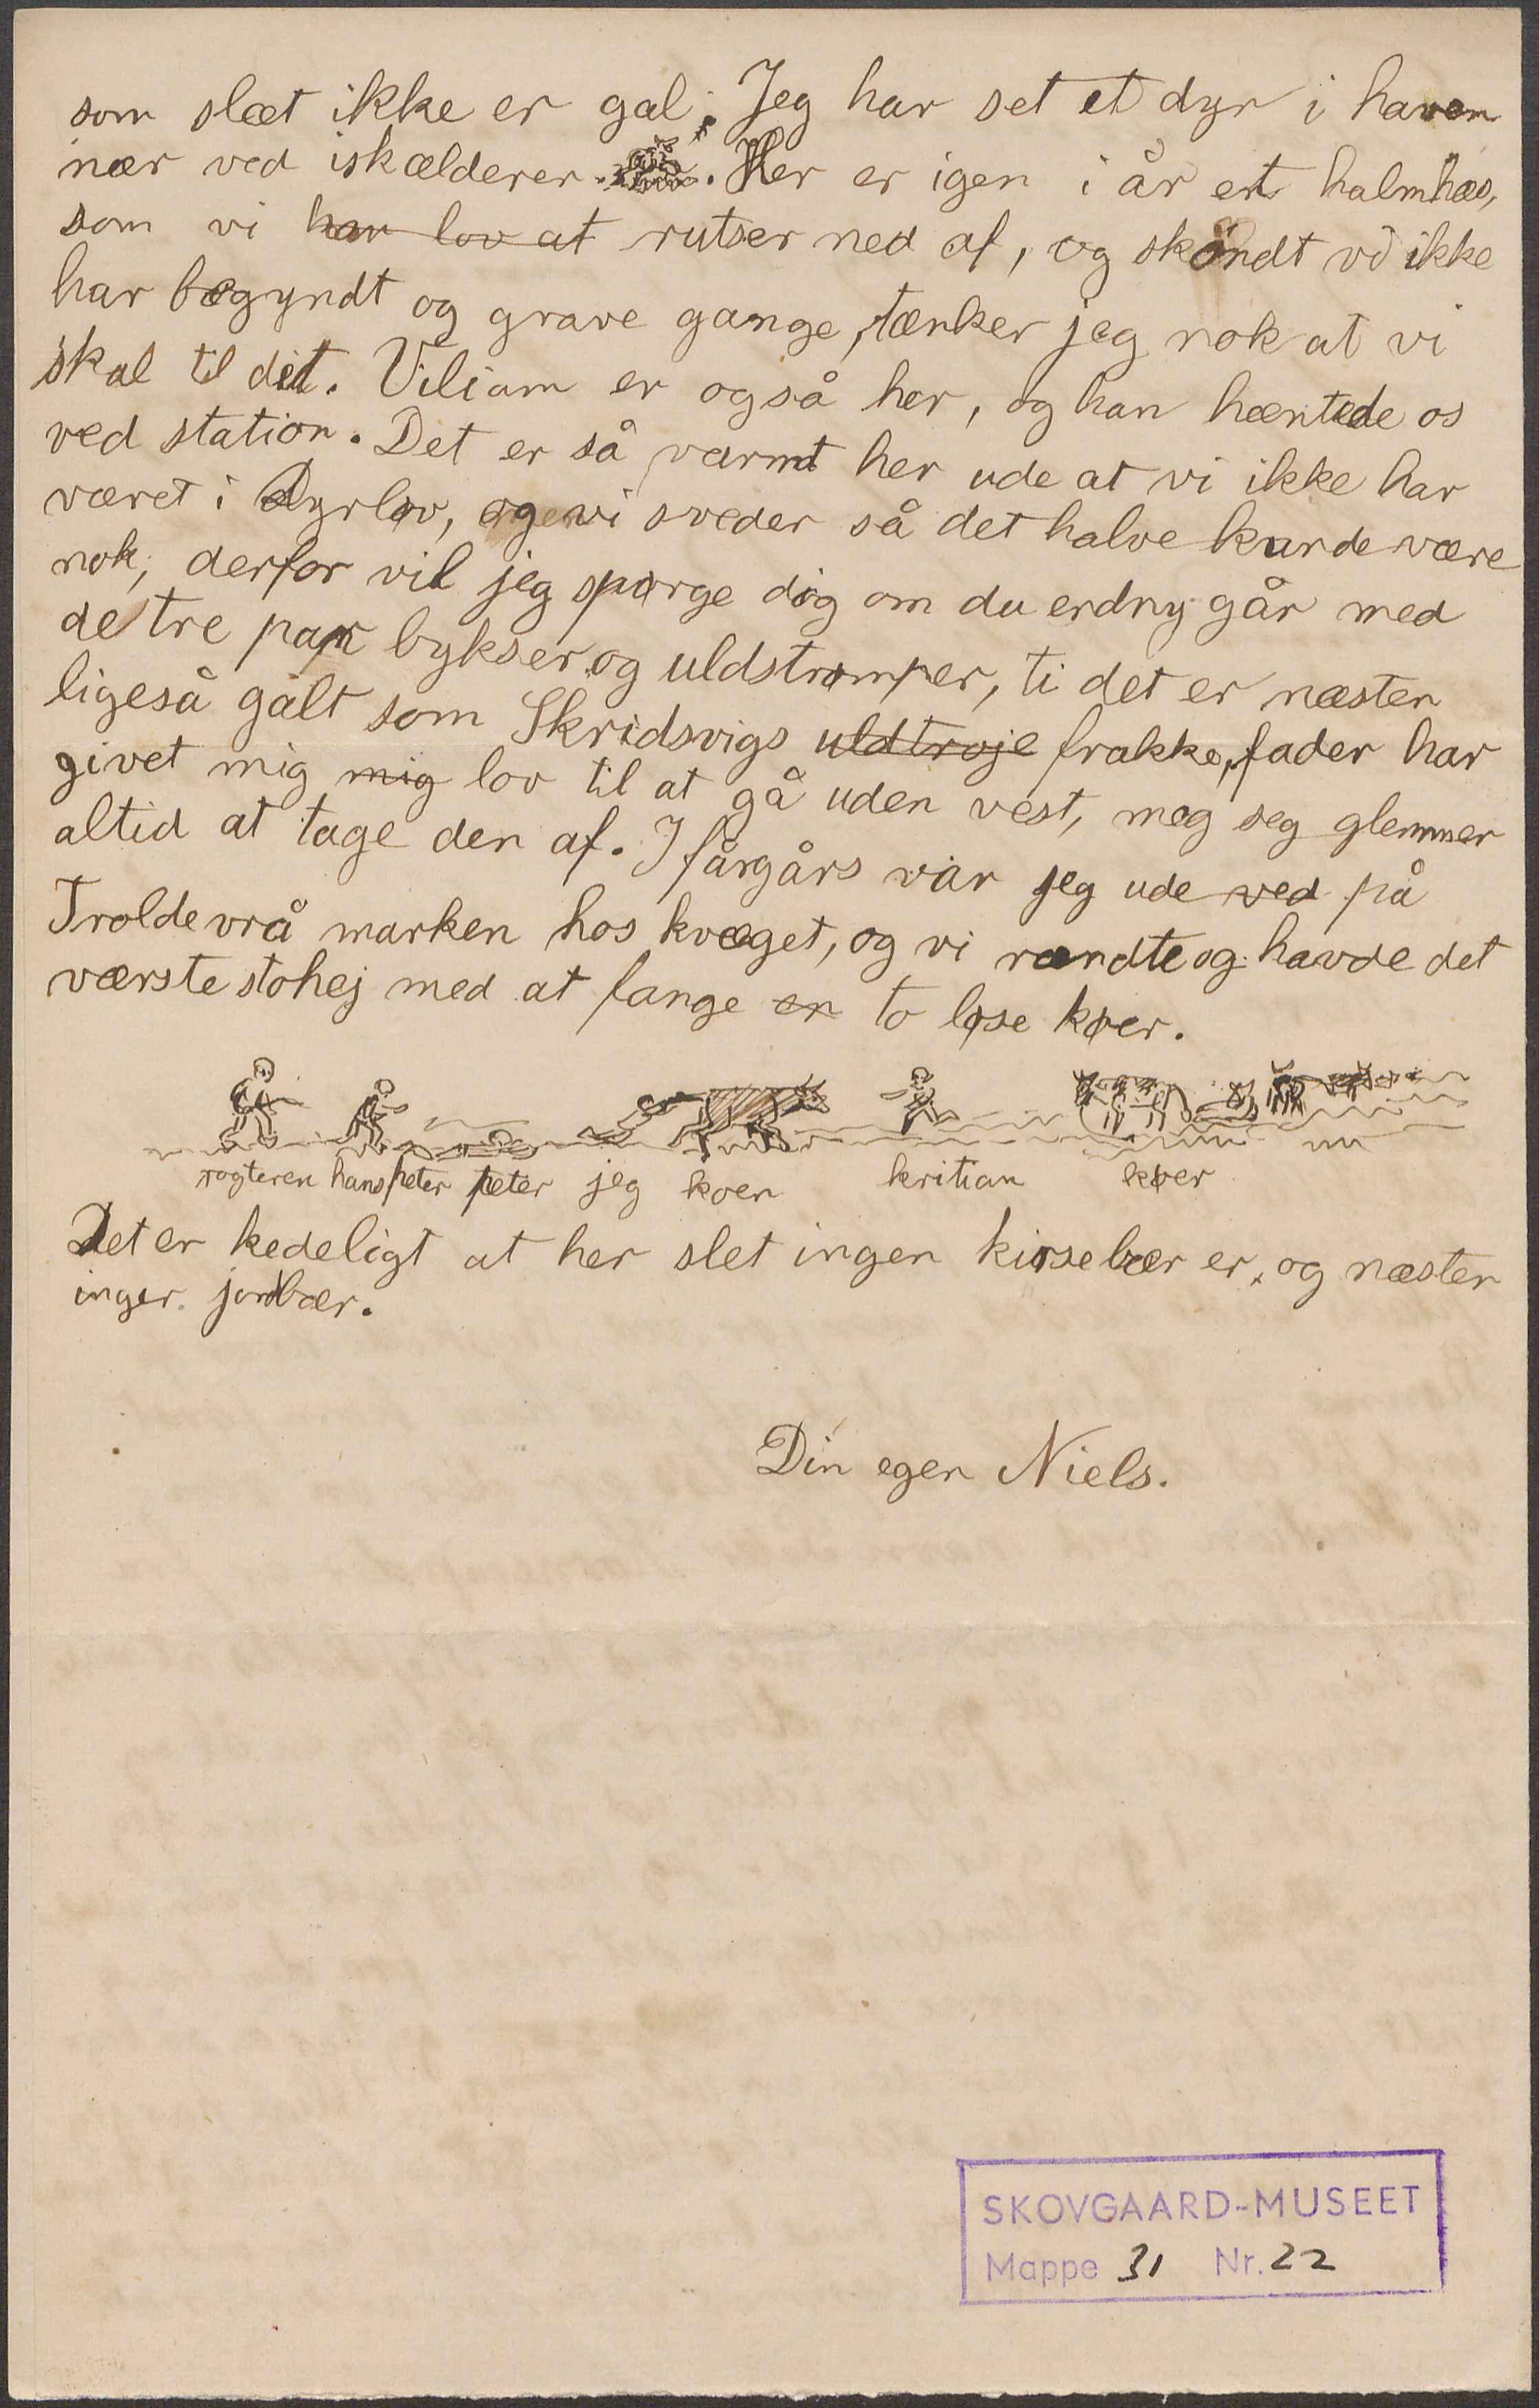 som slæt ikke er gal. Jeg har set et dyr i haven
nær ved iskælderen. Her er igen i år et halmhæs,
som vi har lov at rutser ned af, og skøndt vi ikke
har begyndt og grave gange, tænker jeg nok at vi
skal til det. Viliam er også her, og han hæntede os
ved station. Det er så varmt her ude at vi ikke har
været i Dyrlev, og vi sveder så det halve kunde være
nok, derfor vil jeg spørge dig om du endny går med
de tre par bykser og uldstrømper, ti det er næsten
ligeså galt som Skridsvigs uldtrøje frakke, fader har
givet mig mig lov til at gå uden vest, meg jeg glemmer
altid at tage den af. I fårgårs var jeg ude ved på
Troldevrå marken hos kvæget, og vi rændte og havde det
værste støhej med at fange en to løse køer.
røgteren hanspeter peter jeg koen kritian køer
Det er kedeligt at her slet ingen kirsebær er, og næsten
ingen jordbær.
Din egen Niels.
SKOVGAARD-MUSEET
Mappe 31 Nr. 22